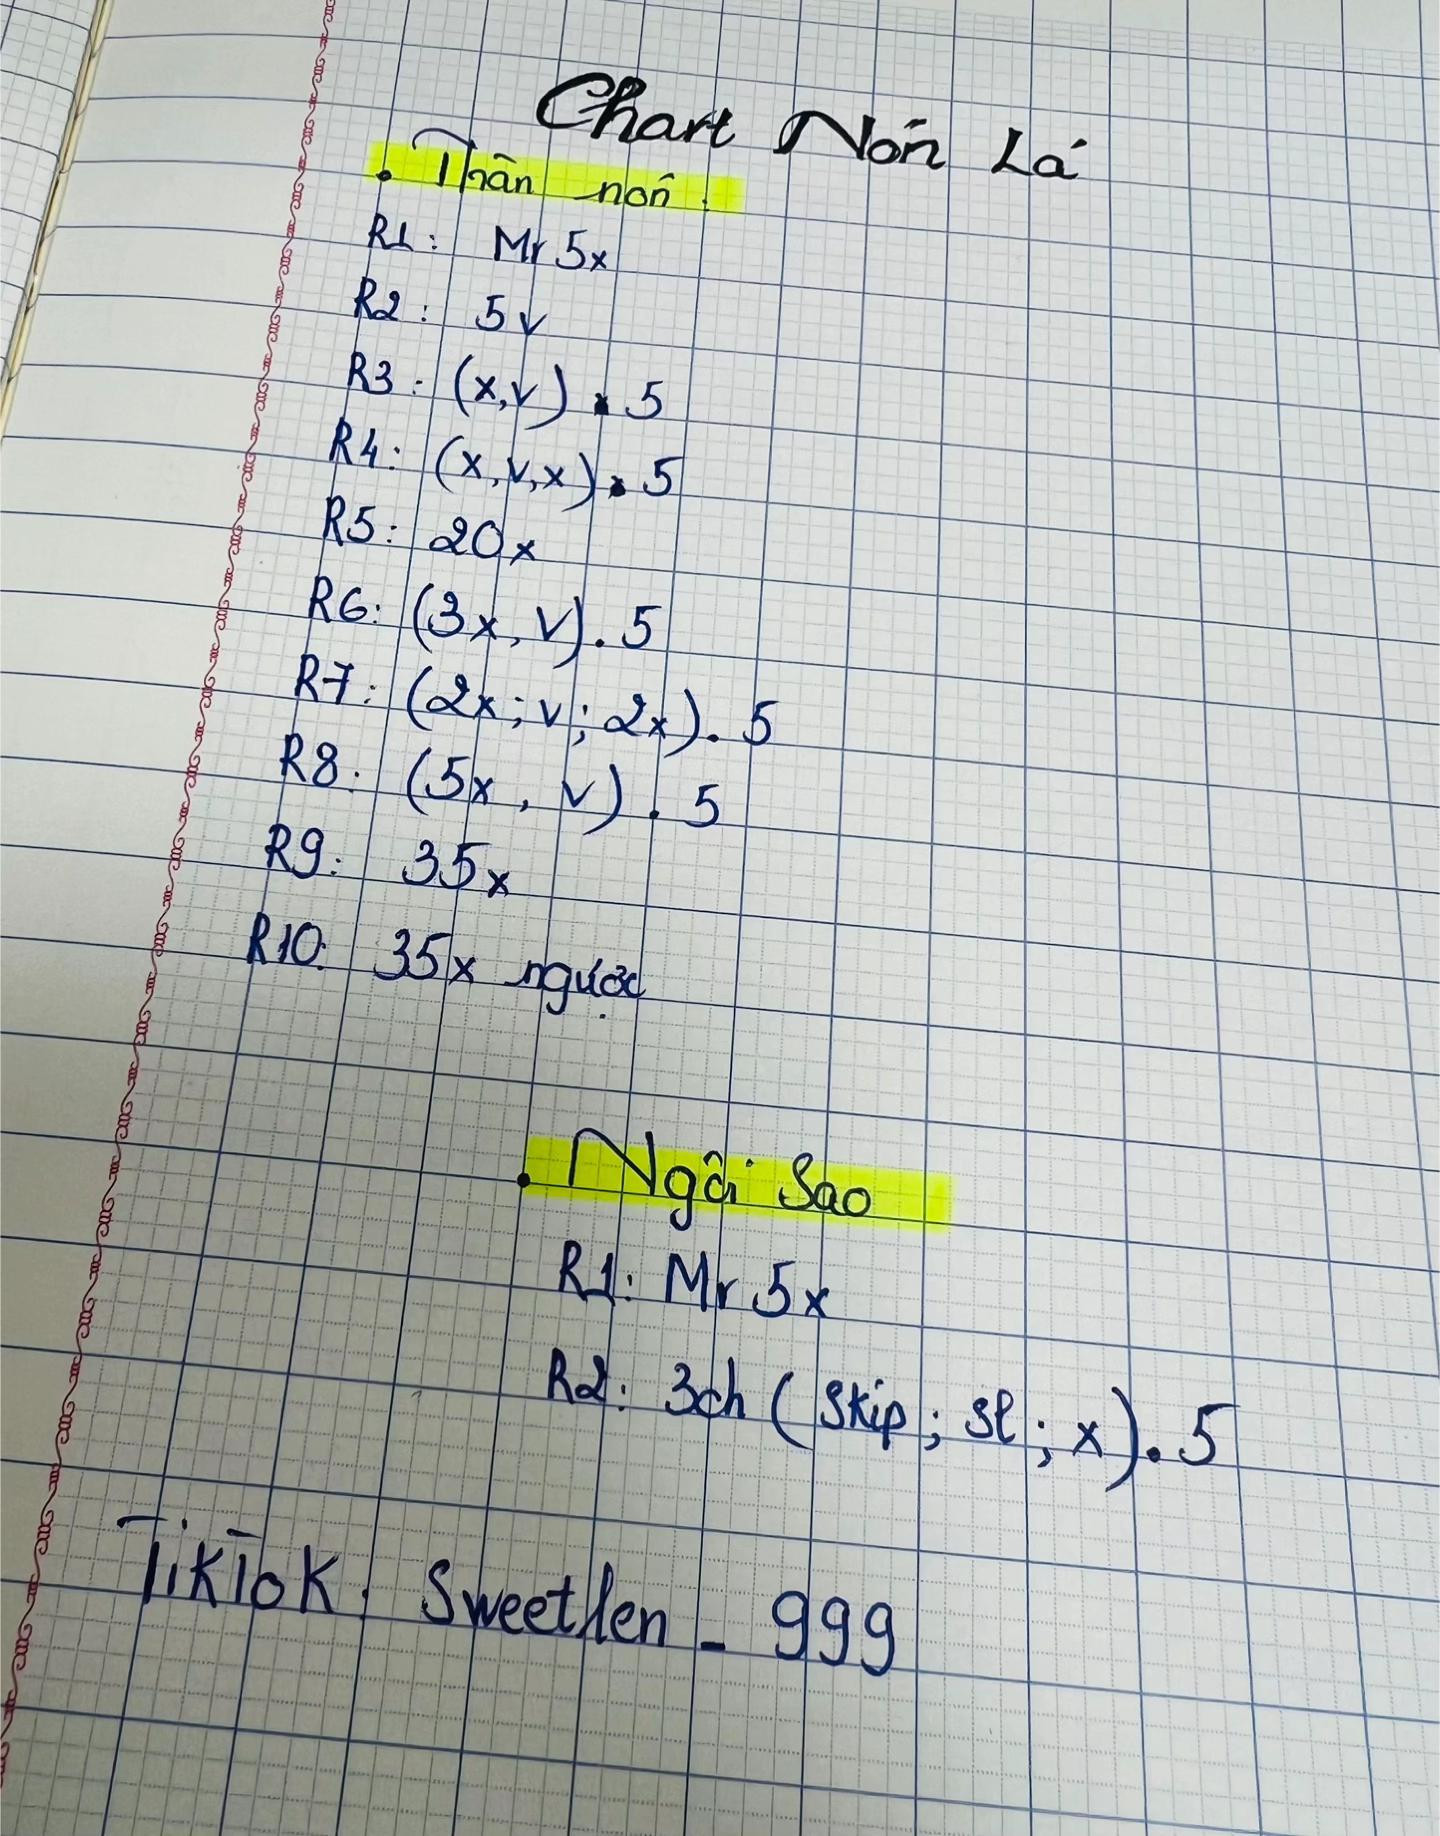 Chart Nón Lá
. Thân nón:
R1: Mr 5x
R2: 5v
R3: (x,v) . 5
R4: (x,v,x) . 5
R5: 20x
R6: (3x, v). 5
R7: (2x; v; 2x). 5
R8: (5x, v) . 5
R9: 35x
R10: 35x ngược
. Ngôi Sao
R1: Mr 5x
R2: 3ch ( Skip; sl; x). 5
TikTok: Sweetlen - 999